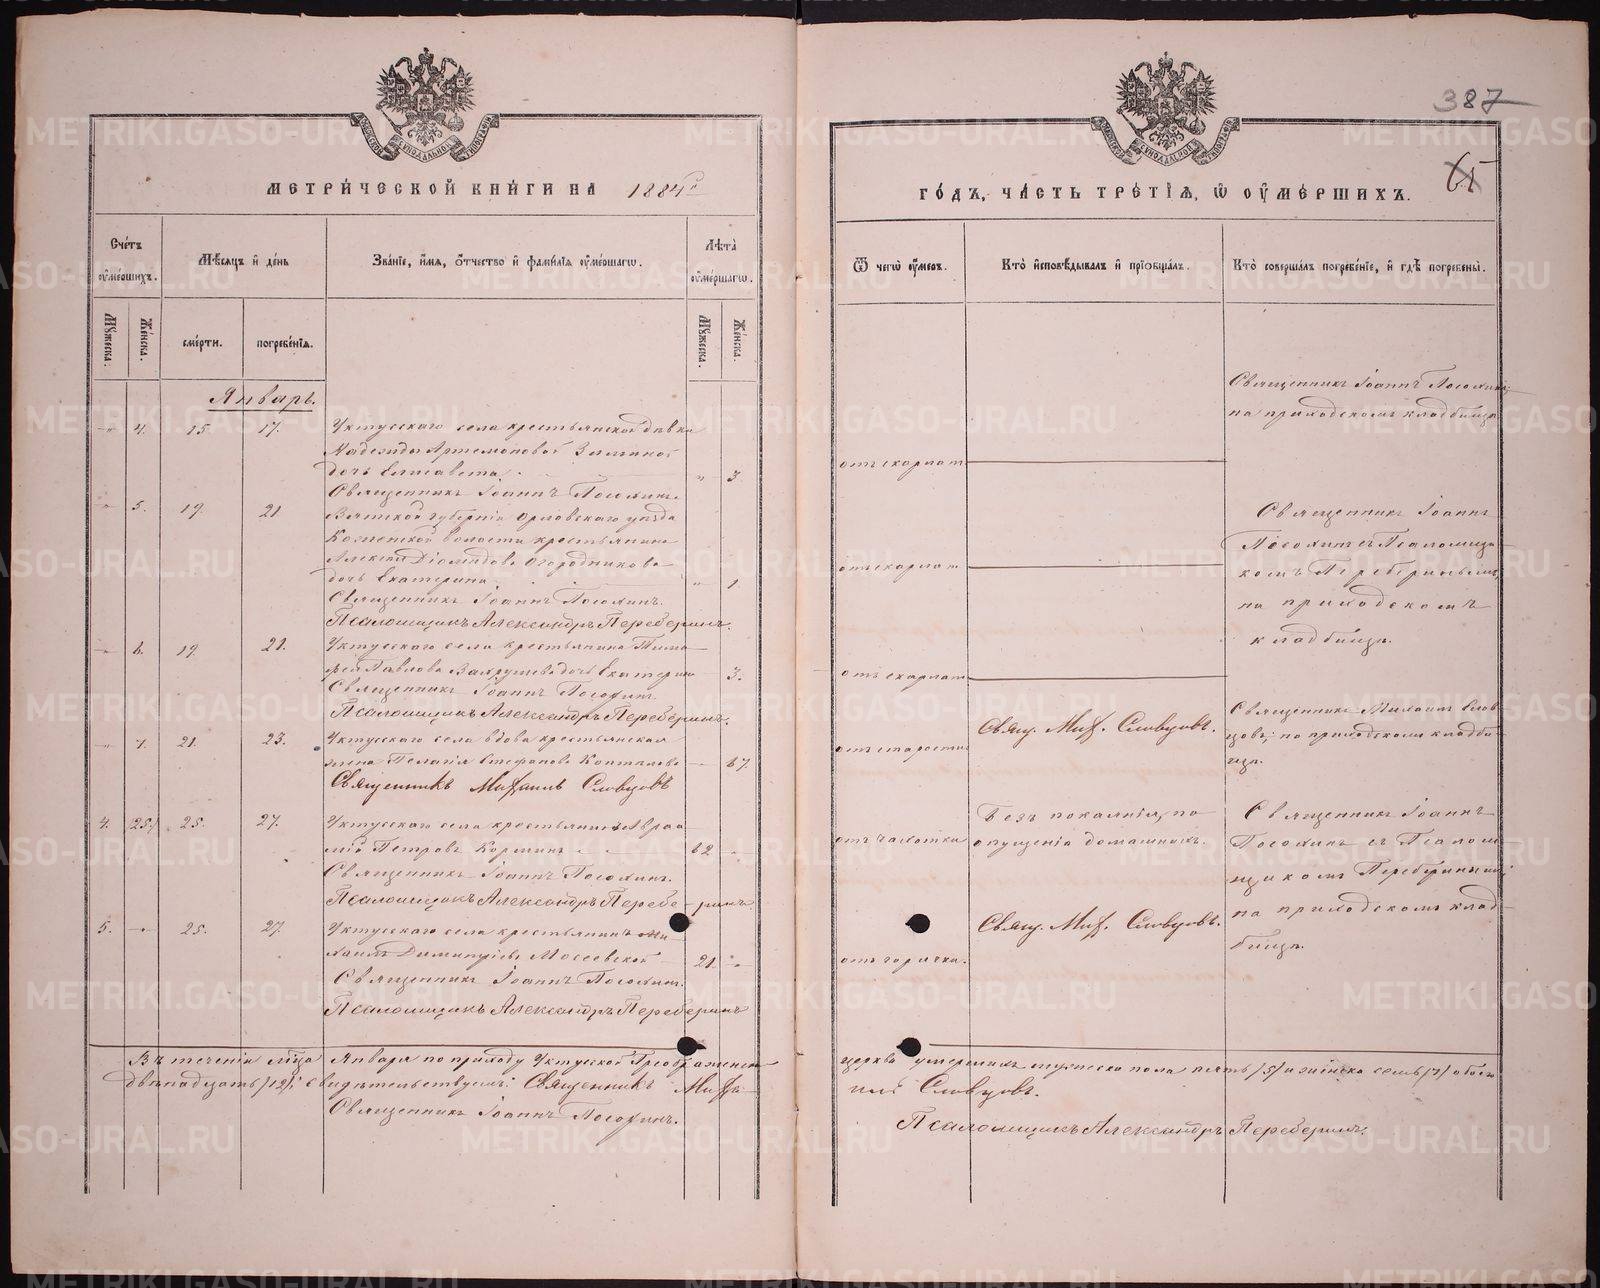 387
65
МОСКОВСКОЙ СѴНОДАЛЬНОЙ ТИПОГРАФІИ
МЕТРИ́ЧЕСКОЙ КНИ́ГИ НА 1884
ГО́ДЪ, ЧА́СТЬ ТРЕ́ТІѦ, Ѡ҆ ОУ҆МЕ́РШИХЪ.
Сче́тъ оу҆ме́ршихъ.
Мѣ́сѧцъ и҆ де́нь
Зва́нїе, и҆́мѧ, ѻ҆́тчество и҆ фами́лїѧ оу҆ме́ршагѡ.
Лѣ́та оу҆ме́ршагѡ.
Мꙋ́жеска.
Же́нска.
сме́рти.
погребе́нїѧ.
Мꙋ́жеска.
Же́нска.
Ѿ чегѡ̀ оу҆́меръ.
Кто̀ и҆сповѣ́дывалъ и҆ прїѡбща́лъ.
Кто̀ соверша́лъ погребе́нїе, и҆ гдѣ̀ погребены̀.
Январь.
" 4. 15. 17.
Уктусскаго села крестьянской дѣвки
Надежды Артемоновой Зыкиной
дочь Елисавета " 3
Священникъ Іоаннъ Посохинъ.
отъ скарлат.
Священникъ Іоаннъ Посохинъ;
на приходскомъ кладбищѣ
" 5. 19. 21
Вятской губерніи Орловскаго уѣзда
волости крестьянина
Алексѣя Діомидова Огородникова
дочь Екатерина " 1
Священникъ Іоаннъ Посохинъ.
Псаломщикъ Александръ Переберинъ.
отъ скарлат.
Священникъ Іоаннъ
Посохинъ съ Псаломщи
комъ Переберинымъ,
на приходскомъ
кладбищѣ.
" 6. 19. 21.
Уктусскаго села крестьянина Тимо
фея Павлова Вахрушева дочь Екатерина 3.
Священникъ Іоаннъ Посохинъ
Псаломщикъ Александръ Переберинъ.
отъ скарлат.
" 7. 21. 23.
Уктусскаго села вдова крестьянская
жена Пелагія Стефанова 67.
Священникъ Михаилъ Словцовъ
отъ старости
Свящ. Мих. Словцовъ.
Священникъ Михаилъ Слов
цовъ; на приходскомъ кладби
щѣ.
4. (25.) 25. 27.
Уктусскаго села крестьянинъ Авраа
мій Петровъ Корминъ 62
Священникъ Іоаннъ Посохинъ.
Псаломщикъ Александръ Переберинъ.
отъ чахотки
Безъ покаянія, по
опущенію домашнихъ.
Священникъ Іоаннъ
Посохинъ съ Псалом
щикомъ Переберинымъ;
на приходскомъ клад
бищѣ.
5. " 25. 27.
Уктусскаго села крестьянинъ Ми
хаилъ Димитріевъ Мосеевской 21. "
Священникъ Іоаннъ Посохинъ.
Псаломщикъ Александръ Переберинъ
отъ горячки.
Свящ. Мих. Словцовъ.
Въ теченіи мѣсяца Января по приходу Уктусской Преображенск церкви умершихъ мужеска пола пять /5/ и женска семь /7/ обоего
двѣнадцать /12/; свидѣтельствуемъ: Священникъ Михаилъ Словцовъ.
Священникъ Іоаннъ Посохинъ.
Псаломщикъ Александръ Переберинъ.
METRIKI.GASO-URAL.RU